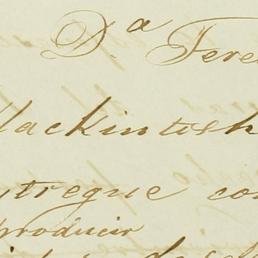 D.ª Tere
Mackintosh
ntregue co
producir